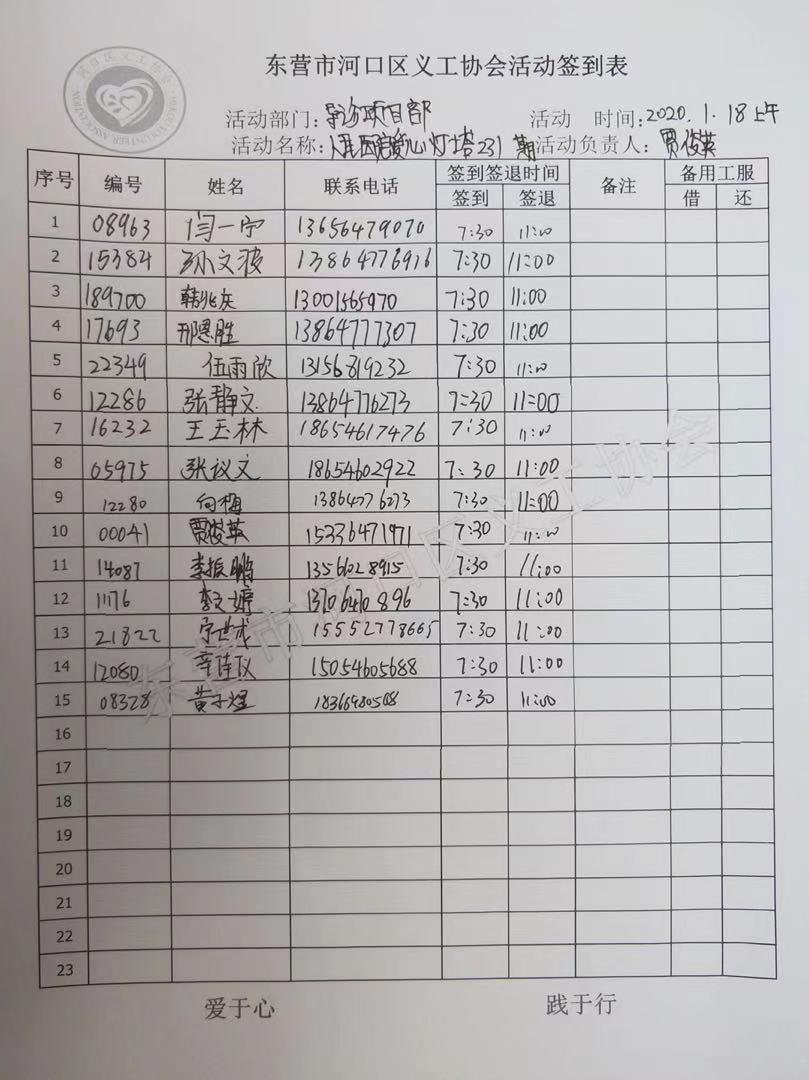 东营市河口区义工协会活动签到表
活动部门:导诊项目部 活动 时间:2020.1.18上午
活动名称:人民医院爱心灯塔231期 活动负责人:贾俊英
序号 编号 姓名 联系电话 签到签退时间 备注 备用工服
签到 签退 借 还
1 08963 闫一宁 13656479070 7:30 11:00
2 15384 孙文波 13864776916 7:30 11:00
3 189700 韩兆庆 13001565970 7:30 11:00
4 17693 邢恩胜 13864777307 7:30 11:00
5 22349 伍雨欣 13156819232 7:30 11:00
6 12286 张静文 13864776273 7:30 11:00
7 16232 王玉林 18654617476 7:30 11:00
8 05975 张议文 18654602922 7:30 11:00
9 12280 向梅 13864776273 7:30 11:00
10 00041 贾俊英 15336471971 7:30 11:00
11 14087 李振鹏 1356028915 7:30 11:00
12 11176 李文婷 13706470896 7:30 11:00
13 21822 宁世成 15552778665 7:30 11:00
14 12080 15054605688 7:30 11:00
15 08328 黄子煜 18366980508 7:30 11:00
16
17
18
19
20
21
22
23
爱于心 践于行
东营市河口区义工协会
河口区义工协会